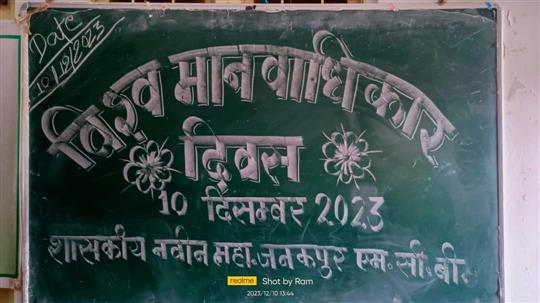 Date
10/12/2023
विश्व मानवाधिकार
दिवस
10 दिसम्बर 2023
शासकीय नवीन महा. जनकपुर एम. सी. बी.
realme Shot by Ram
2023/12/10 13:44